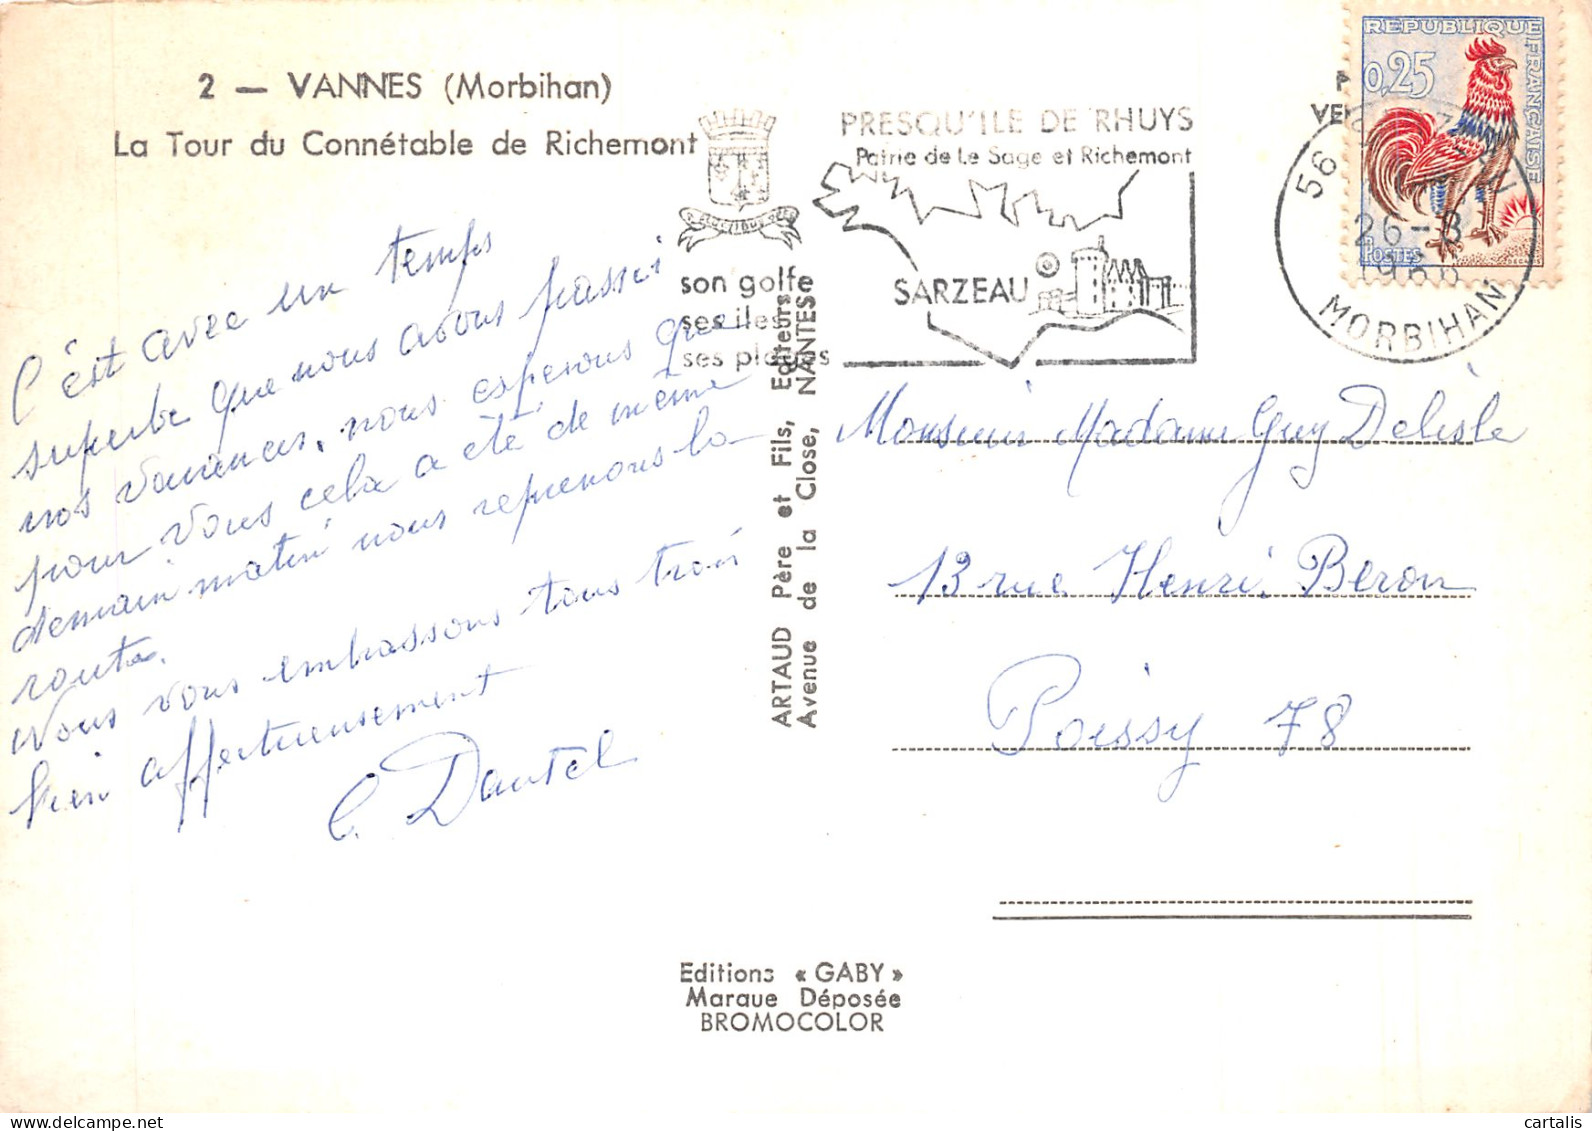 2 — VANNES (Morbihan)
La Tour du Connétable de Richemont
C'est avec un temps
superbe que nous avons passé
nos vacances, nous esperons que
pour vous cela a été de même
demain matin nous reprenons la
route.
Nous vous embrassons tous trois
bien affectueusement
C. Dautel
son golfe
ses iles
ses plages
PRESQU'ILE DE RHUYS
Patrie de Le Sage et Richemont
SARZEAU
56
26-8
1966
MORBIHAN
REPUBLIQUE FRANÇAISE
0,25
POSTES
ARTAUD Père et Fils, Editeurs
Avenue de la Close, NANTES
Monsieur Madame Guy Delisle
13 rue Henri Beron
Poissy 78
Editions « GABY »
Marque Déposée
BROMOCOLOR
delcampe.net
cartalis